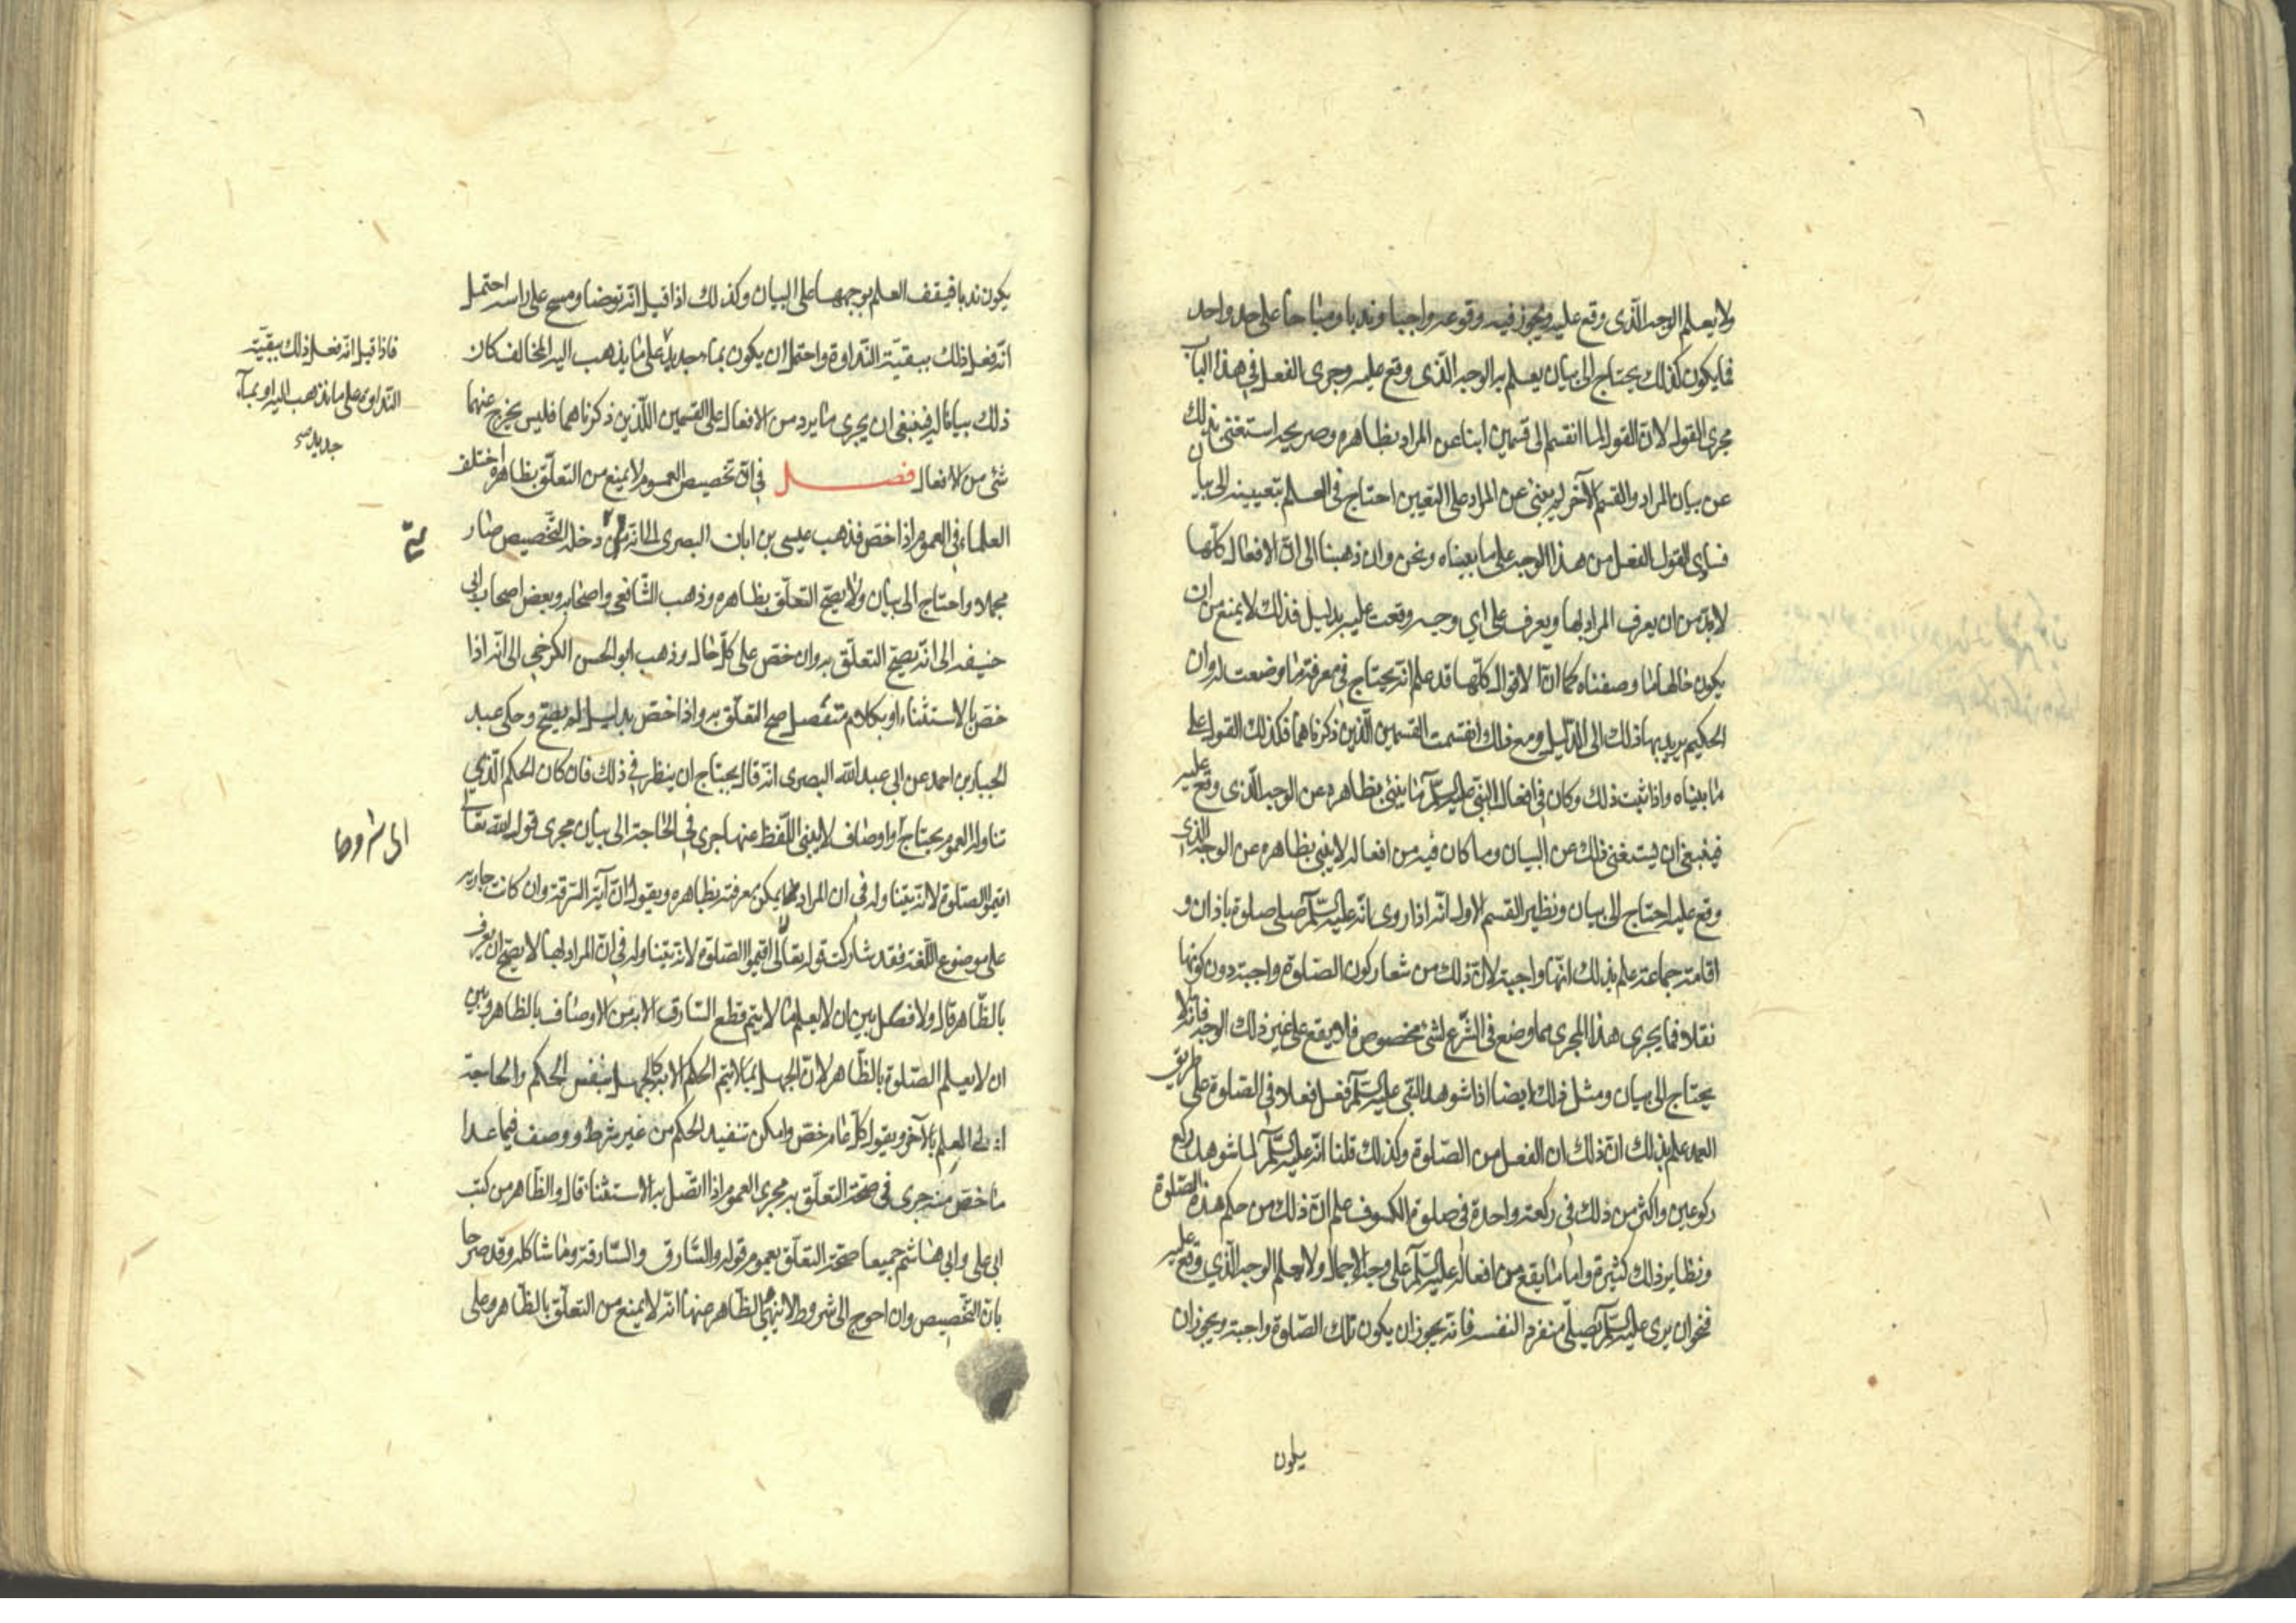 ولا يعلم الوجه الّذى وقع عليه ويجوز فيه وقوعه واجبا وندبا ومباحا على حد واحد
فما يكون كذلك يحتاج الى بيان يعلم به الوجه الّذى وقع عليه وجرى الفعل فى هذا الباب
مجرى القول لانّ القول لما انقسم الى قسمين ابنا عن المراد بظاهره وصريحه استغنى بذلك
عن بيان المراد والقسم الآخر لم ينبئ عن المراد على التعيين احتاج فى العلم بتعيينه الى بيان
فساوى القول الفعل من هذا الوجه على ما بيناه ونحن وان ذهبنا الى انّ الافعال كلّها
لابدّ من ان يعرف المراد بها ويعرف على اي وجه وقعت عليه بدليل فذلك لا يمنع من ان
يكون حالها ما وصفناه كما انّ الاقوال كلّها قد علم انّه يحتاج فى معرفة ما وضعت له وان
الحكيم يريد بها ذلك الى الدّليل ومع ذلك انقسمت القسمين الّذين ذكرناهما فكذلك القول على
ما بيناه واذا ثبت ذلك وكان فى افعال النبّى عليه السّلم ما ينبئ بظاهره عن الوجه الّذى وقع عليه
فينبغى ان يستغنى ذلك عن البيان وما كان فيه من افعاله لا ينبئ بظاهره عن الوجه الّذى
وقع عليه احتاج الى بيان ونظير القسم الاول انّه اذا روى انّه عليه السّلم صلى صلوة باذان و
اقامة جماعة علم بذلك انّها واجبة لانّ ذلك من شعار كون الصّلوة واجبة دون كونها
نفلا فما يجرى هذا المجرى مما وضع فى الشّرع لشئ مخصوص فلا يقع على غير ذلك الوجه فانّه لا
يحتاج الى بيان ومثل ذلك ايضا اذا شوهد النّبى عليه السّلم فعل فعلا فى الصّلوة على طريق
العمد علم بذلك انّ ذلك ان الفعل من الصّلوة وكذلك قلنا انّه عليه السّلم لما شوهد ركع
ركوعين واكثر من ذلك فى ركعة واحدة فى صلوة الكسوف علم انّ ذلك من حكم هذه الصّلوة
ونظاير ذلك كثيرة واما ما يقع من افعاله عليه السّلم على وجه الاجمال ولا يعلم الوجه الّذي وقع عليه
فنحو ان يرى عليه السّلم يصلّى منفردا لنفسه فانّه يجوز ان يكون تلك الصّلوة واجبة ويجوز ان
يكون
يكون ندبا فيقف العلم بوجهها على البيان وكذلك اذا قيل انّه توضا ومسح على راسه احتمل
انّه فعل ذلك ببقيّة النّداوة واحتمل ان يكون بماء جديد على ما يذهب اليه المخالف كان
ذلك بيانا له فينبغى ان يجرى ما يرد من الافعال على القسمين اللّذين ذكرناهما فليس يخرج عنهما
شئ من الافعال فصل فى انّ تخصيص العموم لا يمنع من التعلّق بظاهره اختلف
العلماء فى العموم اذا خصّ فذهب عيسى بن ابان البصرى الى انّه دخله التّخصيص صار
مجملا واحتاج الى بيان ولا يصحّ التعلّق بظاهره وذهب الشّافعى واصحابه وبعض اصحاب ابى
حنيفه الى انّه يصحّ التعلّق به وان خصّ على كلّ حال وذهب ابو الحسن الكرخي الى انّه اذا
خصّ بالاستثناء او بكلام متّصل صح التعلّق به واذا خصّ بدليل لم يصحّ وحكى عبد
الجبار بن احمد عن ابى عبد اللّه البصرى انّه قال يحتاج ان ينظر فى ذلك فان كان الحكم الّذي
تناوله العموم يحتاج او اوصاف لا ينبئ اللّفظ عنها جرى فى الحاجة الى بيان مجرى قوله اللّه تعالى
اقيموا الصّلوة لانّه يتناوله فى ان المراد بها يمكن معرفته بظاهره ويقول انّ آية السّرقة وان كانت جارية
على موضوع اللّغة فقد شاركت قوله تعالى اقيموا الصّلوة لانّه يتناوله فى انّ المراد بها لا يصحّ ان يعرف
بالظّاهر قال ولا فصل بين ان لا يعلم ما لا يتم قطع السّارق الا به من الاوصاف بالظاهر وبين
ان لا يعلم الصّلوة بالظّاهر لانّ الجهل بما لا يتم الحكم الا به كالجهل بنفس الحكم والحاجة
الى العلم بالآخر ويقول كلّ عام خصّ وامكن تنفيذ الحكم من غير شرط ووصف فيما عدا
ما خصّ منه جرى فى صحّة التعلّق به مجرى العموم اذا اتّصل به الاستثناء قال والظّاهر من كتب
ابى على وابى هاشم جميعا صحّة التعلّق بعموم قوله والسّارق والسّارقة وما شاكله وقد صرحا
بانّ التّخصيص وان احوج الى شروط لا ينبئ الظّاهر عنها انّه لا يمنع من التعلّق بالظّاهر وعلى
فاذا قيل انّه فعل ذلك ببقيّة
النّداوة على ما نذهب اليه او بماء
جديد صح
الى شروط